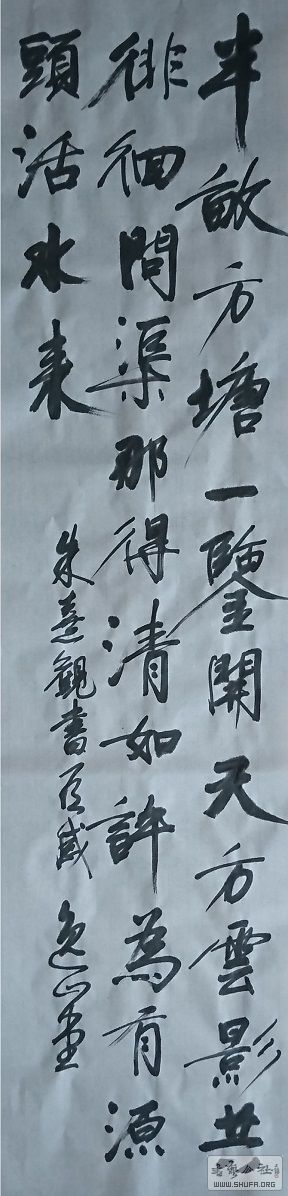 半畝方塘一鑒開天方雲影共
徘徊問渠那得清如許為有源
頭活水來
朱熹觀書有感
WWW.SHUFA.ORG